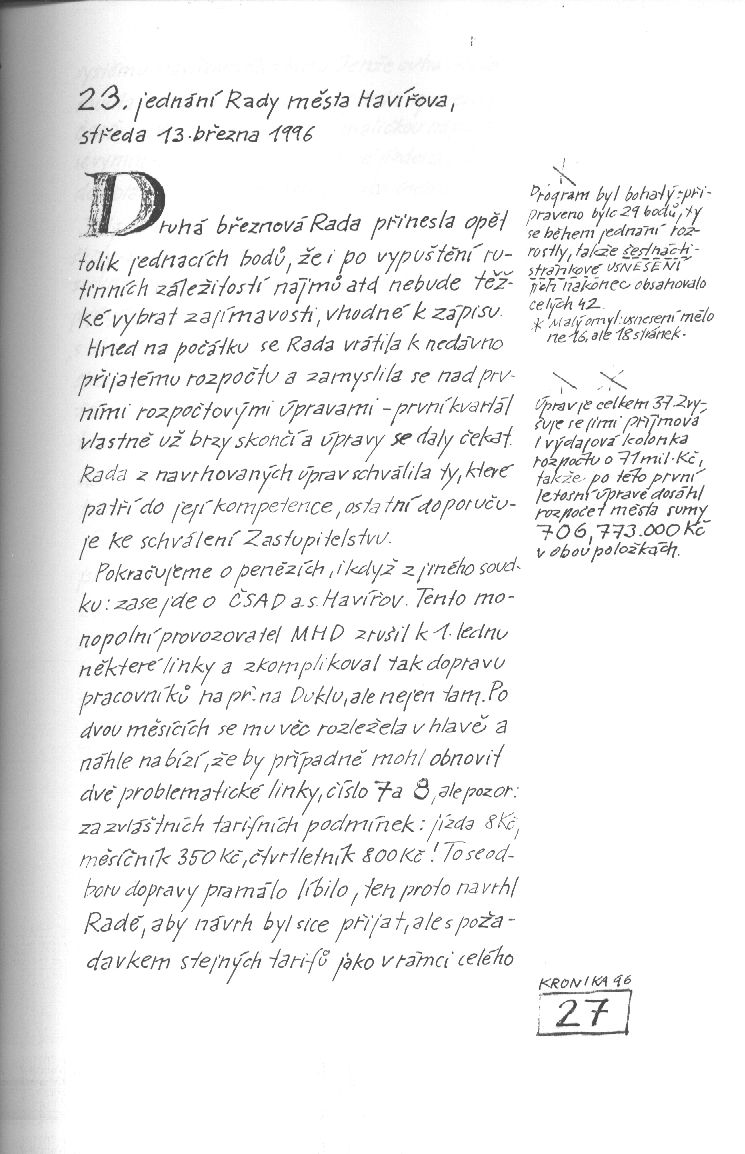 23. jednání Rady města Havířova,
středa 13. března 1996
Druhá březnová Rada přinesla opět
tolik jednacích bodů, že i po vypuštění ru-
tinních záležitostí nájmů atd nebude těž-
ké vybrat zajímavosti, vhodné k zápisu.
Hned na počátku se Rada vrátila k nedávno
přijatému rozpočtu a zamyslila se nad prv-
ními rozpočtovými úpravami - první kvartál
vlastně už brzy skončí a úpravy se daly čekat.
Rada z navrhovaných úprav schválila ty, které
patří do její kompetence, ostatní doporuču-
je ke schválení Zastupitelstvu.
Pokračujeme o penězích, i když z jiného soud-
ku: zase jde o ČSAD a.s. Havířov. Tento mo-
nopolní provozovatel MHD zrušil k 1. lednu
některé linky a zkomplikoval tak dopravu
pracovníků např. na Duklu, ale nejen tam. Po
dvou měsících se mu věc rozležela v hlavě a
náhle nabízí, že by případně mohl obnovit
dvě problematické linky, číslo 7 a 8, ale pozor:
za zvláštních tarifních podmínek: jízda 8 Kč,
měsíčník 350 Kč, čtvrtletník 800 Kč! To se od-
boru dopravy pramálo líbilo, ten proto navrhl
Radě, aby návrh byl sice přijat, ale s poža-
davkem stejných tarifů jako v rámci celého
Program byl bohatý: při-
praveno bylo 29 bodů, ty
se během jednání roz-
rostly, takže šestnácti-
stránkové USNESENÍ
jich nakonec obsahovalo
celých 42.
* Malý omyl: usnesení mělo
ne 16, ale 18 stránek.
Úprav je celkem 37. Zvy-
šuje se jimi příjmová
i výdajová kolonka
rozpočtu o 71 mil. Kč,
takže po této první
letošní úpravě dosáhl
rozpočet města sumy
706,773.000 Kč
v obou položkách.
KRONIKA 96
27